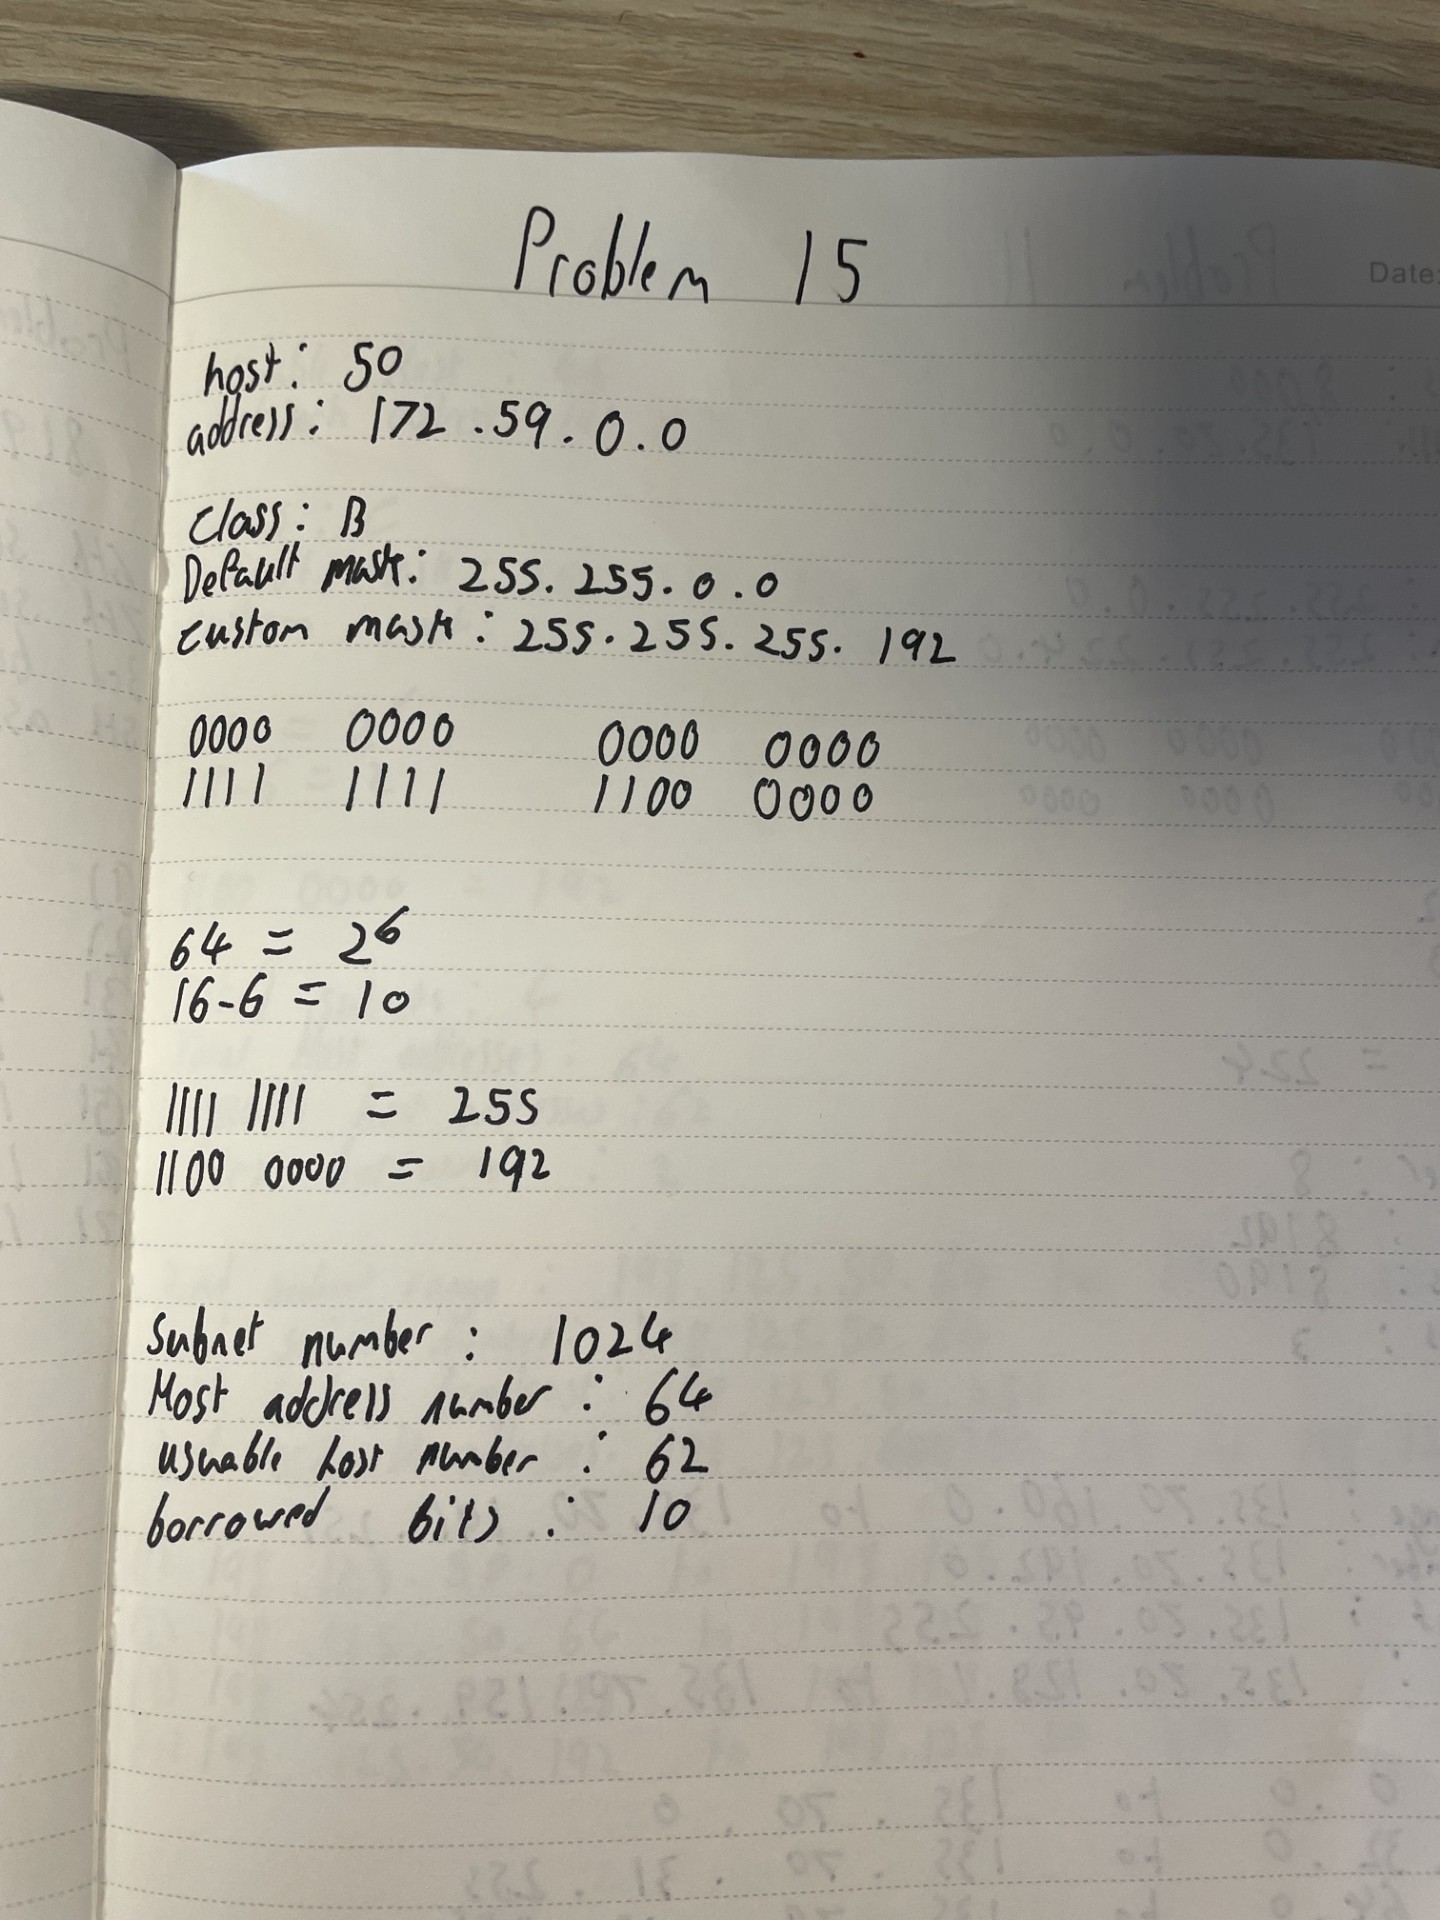 Problem 15
Date:
host: 50
address: 172.59.0.0
Class: B
Default mask: 255.255.0.0
custom mask: 255.255.255.192
0000 0000 0000 0000
1111 1111 1100 0000
64 = 2⁶
16-6 = 10
1111 1111 = 255
1100 0000 = 192
Subnet number: 1024
Host address number: 64
usuable host number: 62
borrowed bits: 10